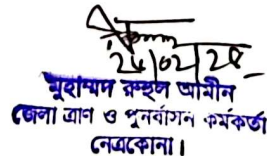 মুহাম্মদ রুহুল আমীন
জেলা ত্রাণ ও পুনর্বাসন কর্মকর্তা
নেত্রকোনা।